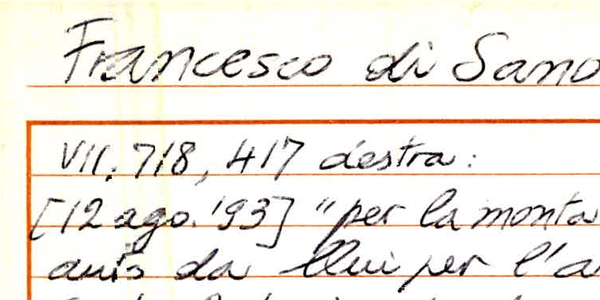 Francesco di Sano
VII, 718, 417 destra:
[12 ago. '93] "per la monta
da llui per l'a